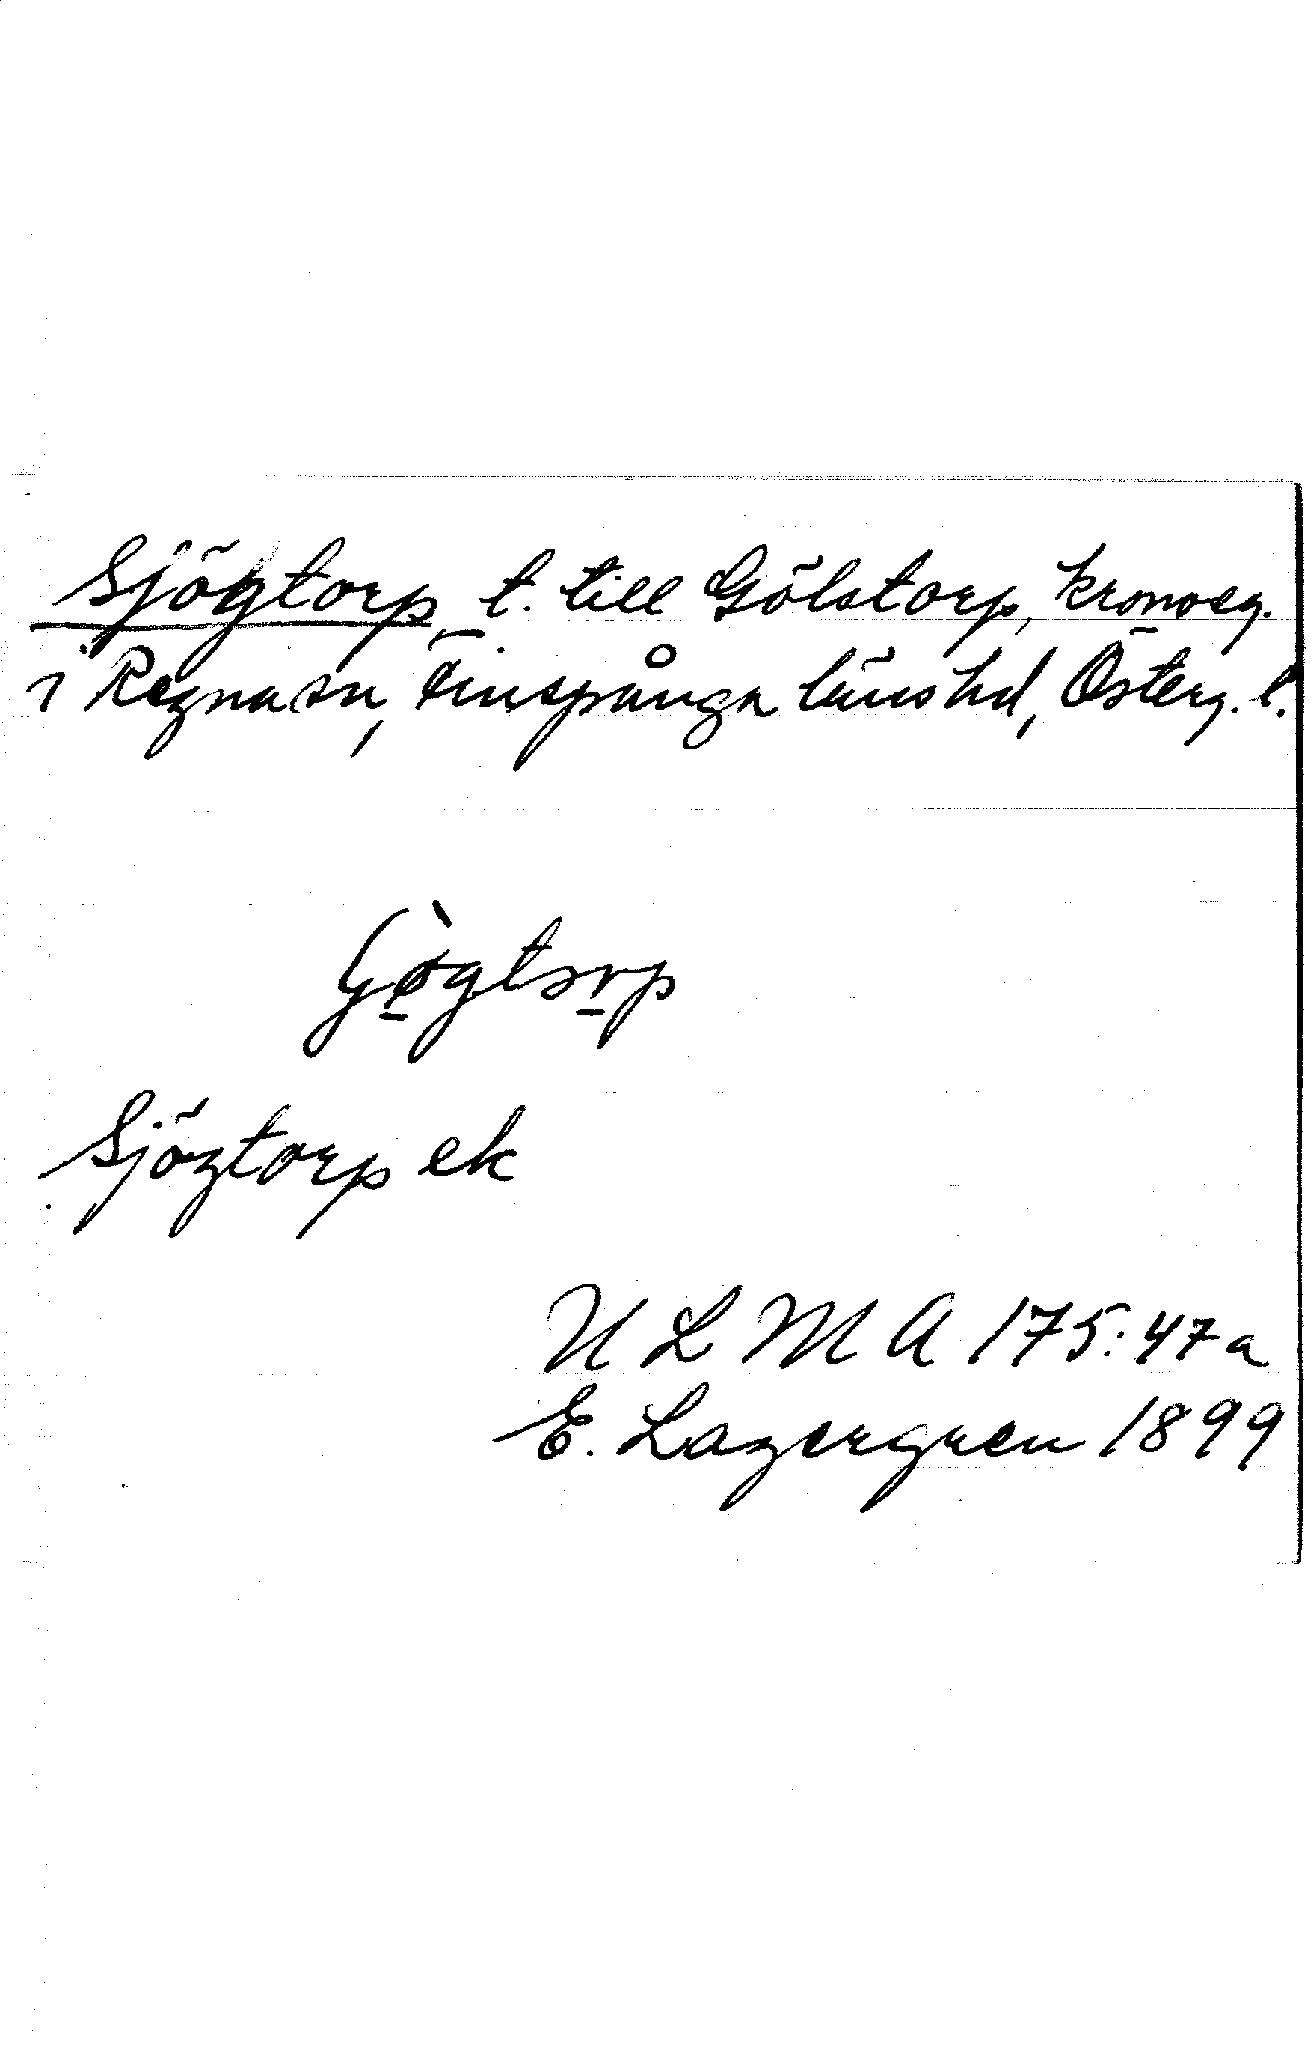 Sjögtorp, t. till Gölstorp, kronoeg.
i Regna sn, Finspånga läns hd, Österg. l.
Gö̀gtorp
Sjögtorp ek
U L M A 175:47a
E. Lagergren 1899